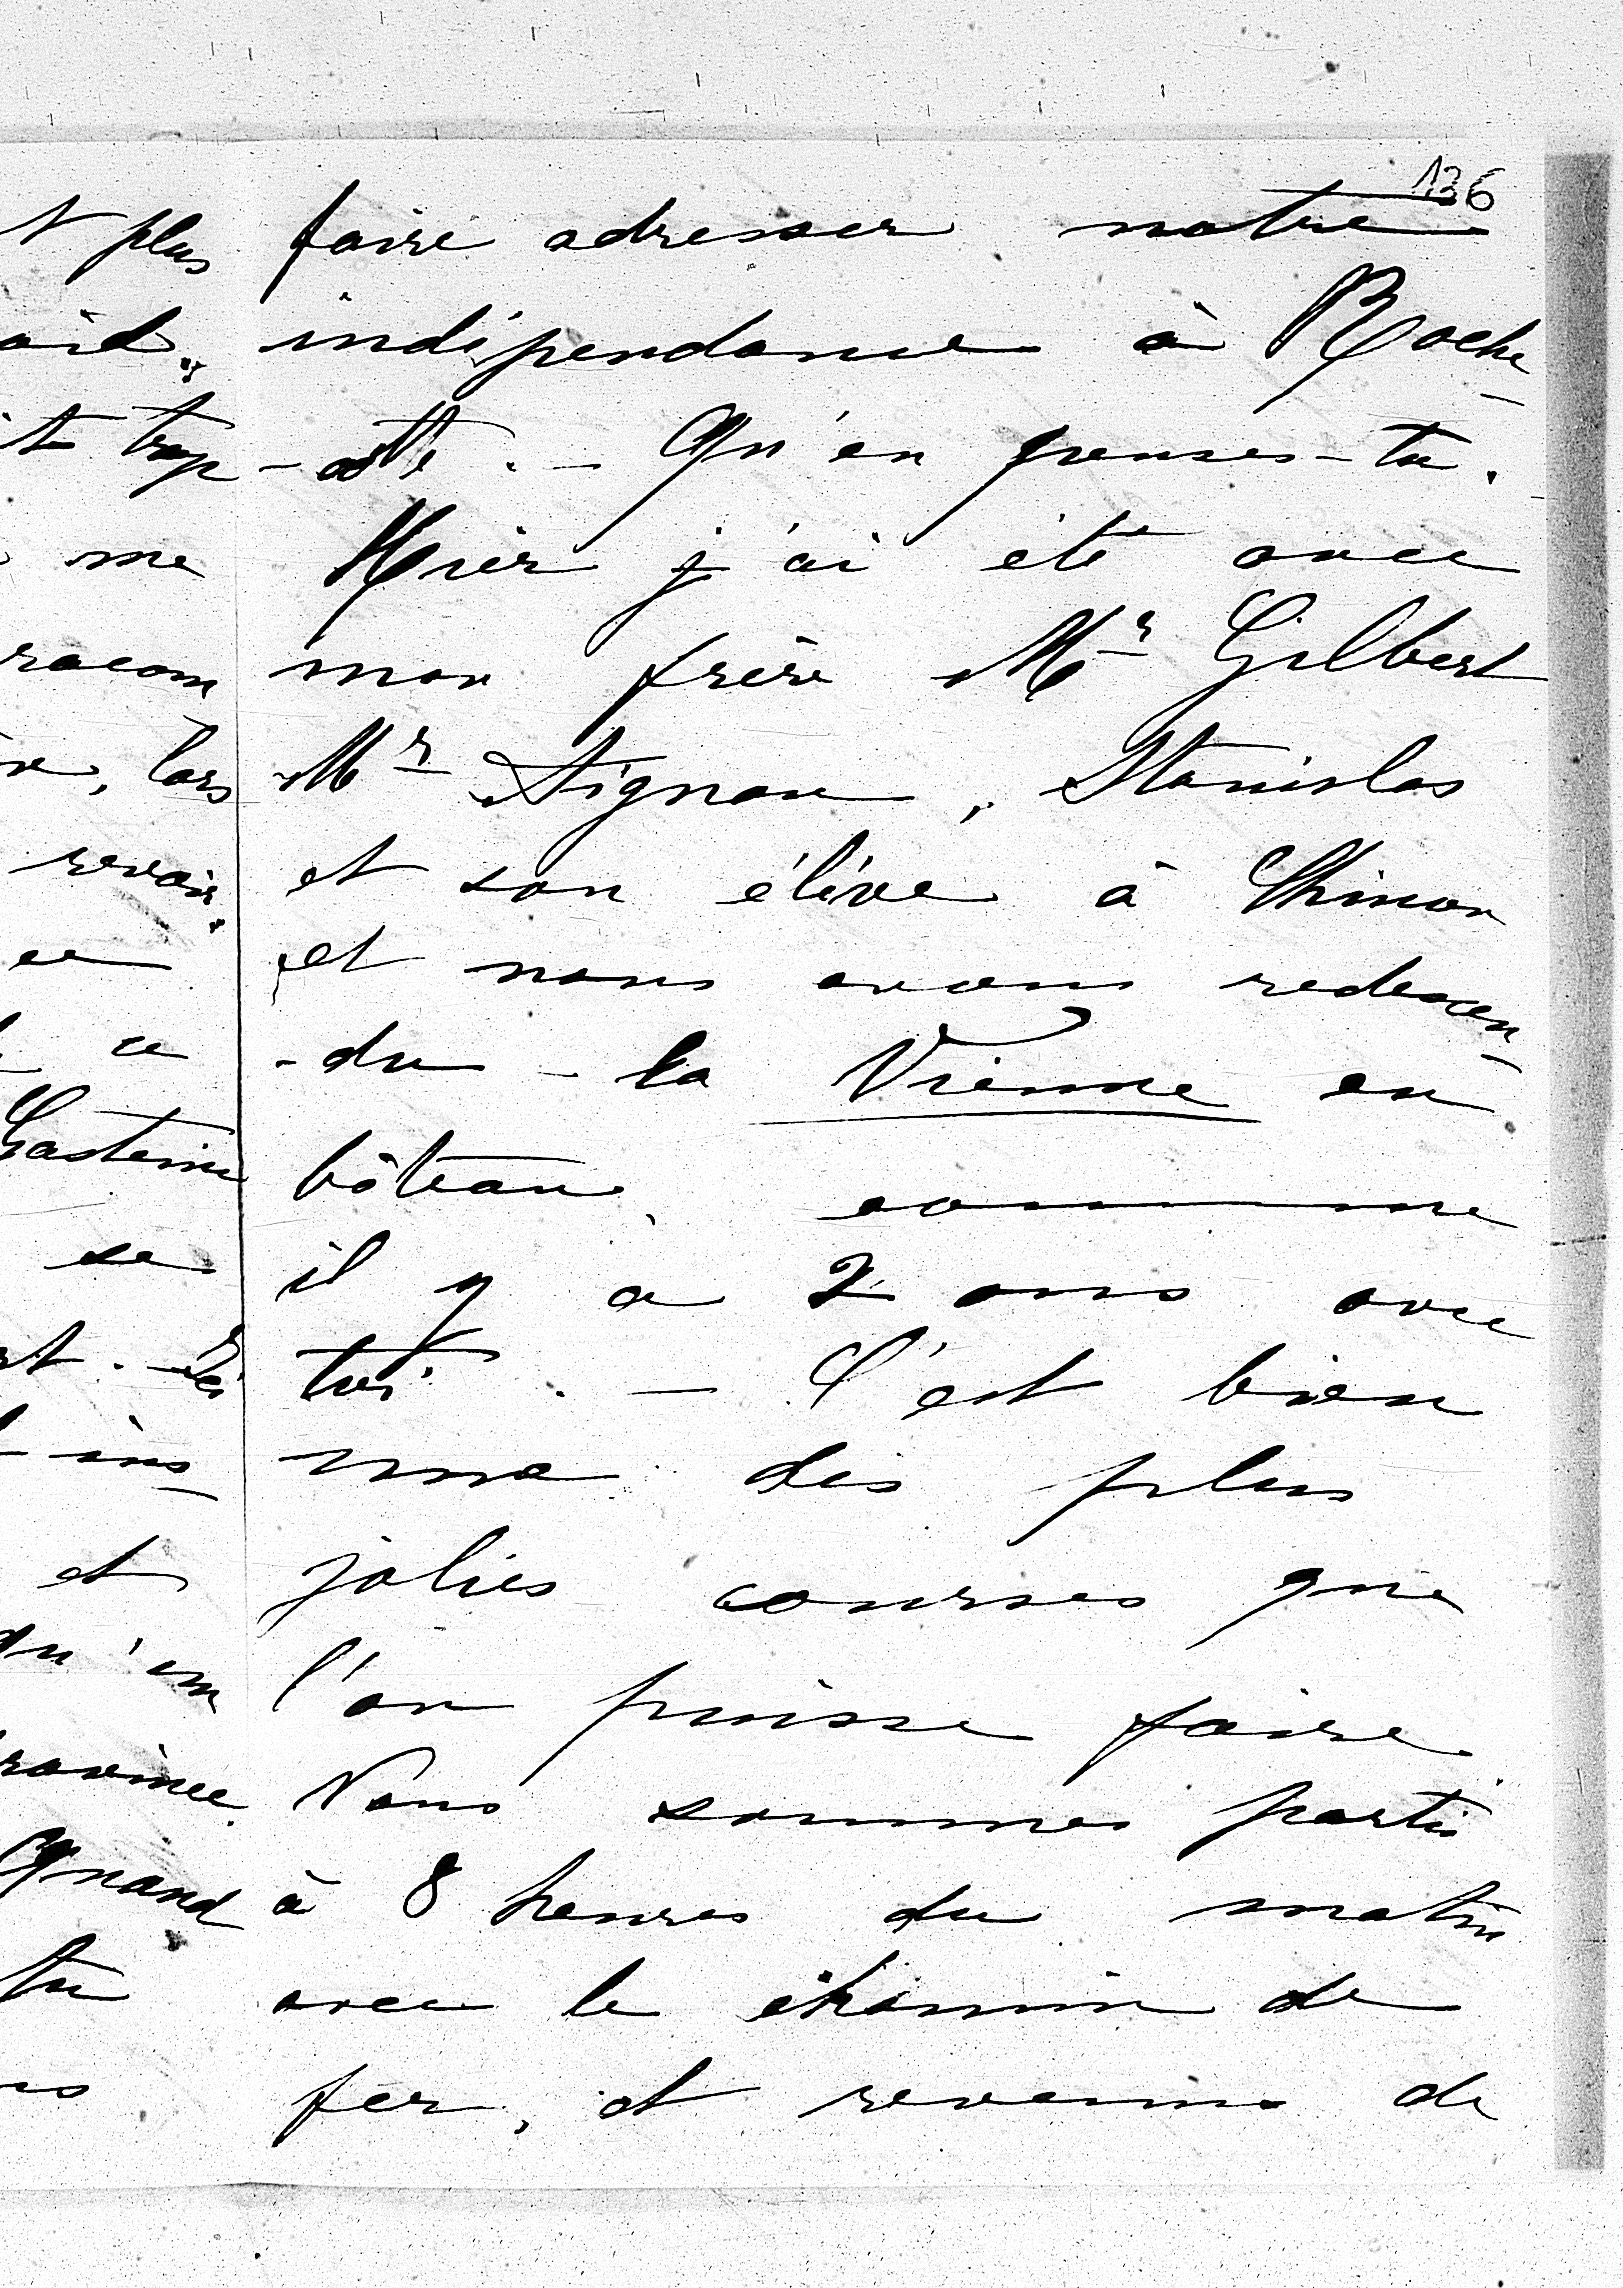 136
t plus
oid.
it trop
me
racom
lors
revoir.
ce
ce
Gasterine
se
ins-
et
qu'un
rovince.
Quand
tu
faire adresser notre
indépendance à Roche
-cotte. - Qu'en penses-tu.
Hier j'ai été avec
mon frère Mr Gilbert
Mr Aignan, Stanislas
et son élève à Chinon
et nous avons redescen-
-du - la Vienne en
bâteau, comme
il y a 2 ans avec
toi. - C'est bien
une des plus
jolies courses que
l'on puisse faire.
Nous sommes partis
à 8 heures du matin
avec le chemin de
fer, et revenus de